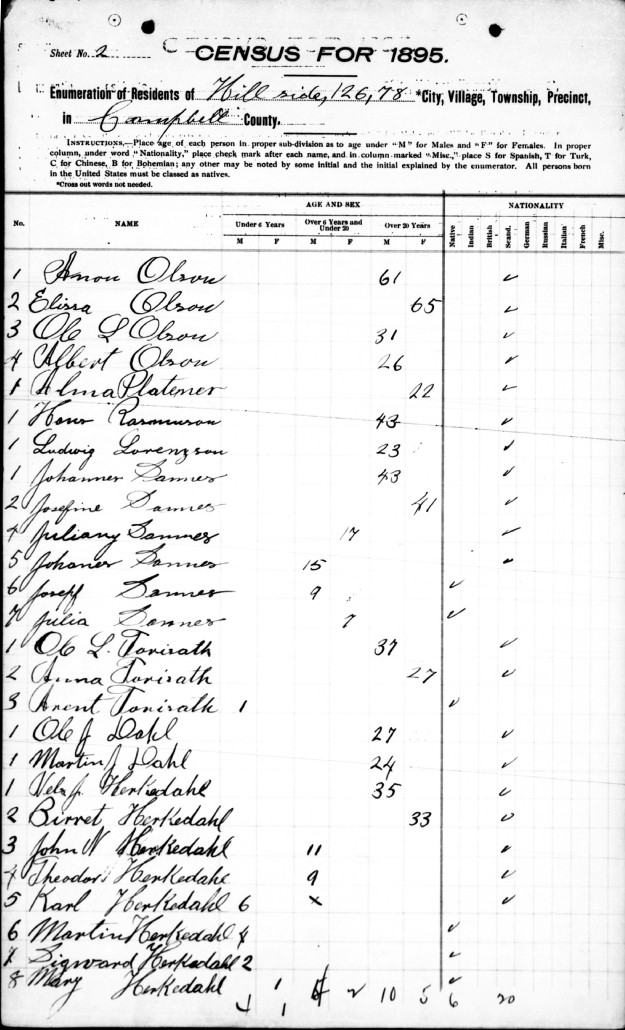 Sheet No. 2
CENSUS FOR 1895.
Enumeration of Residents of Hill side, 126, 78 *City, Village, Township, Precinct,
in Campbell County.
INSTRUCTIONS,—Place age of each person in proper sub-division as to age under "M" for Males and "F" for Females. In proper
column, under word "Nationality," place check mark after each name, and in column marked "Misc.," place S for Spanish, T for Turk,
C for Chinese, B for Bohemian; any other may be noted by some initial and the initial explained by the enumerator. All persons born
in the United States must be classed as natives.
*Cross out words not needed.
AGE AND SEX NATIONALITY
No. NAME Under 6 Years Over 6 Years and Under 20 Over 20 Years Native Indian British Scand. German Russian Italian French Misc.
M F M F M F
1 Amon Olson 61 ✓
2 Elissa Olson 65 ✓
3 Ole L Olson 31 ✓
4 Albert Olson 26 ✓
1 Alma Platener 22 ✓
1 Hans Rasmuson 43 ✓
1 Ludwig Lorenzson 23 ✓
1 Johannes Sannes 43 ✓
2 Josefine Sannes 41 ✓
4 Juliany Sannes 17 ✓
5 Johanes Sannes 15 ✓
6 Josef Sannes 9 ✓
7 Julia Sannes 7 ✓
1 Ole L. Torisath 37 ✓
2 Anna Torisath 27 ✓
3 Arent Torisath 1 ✓
1 Ole J Dahl 27 ✓
1 Martin J Dahl 24 ✓
1 Herkedahl 35 ✓
2 Birret Herkedahl 33 ✓
3 John N Herkedahl 11 ✓
4 Theodor Herkedahl 9 ✓
5 Karl Herkedahl 6 x ✓
6 Martin Herkedahl 4 ✓
7 Sigward Herkedahl 2 ✓
8 Mary Herkedahl 1 ✓
4 1 2 10 5 6 20